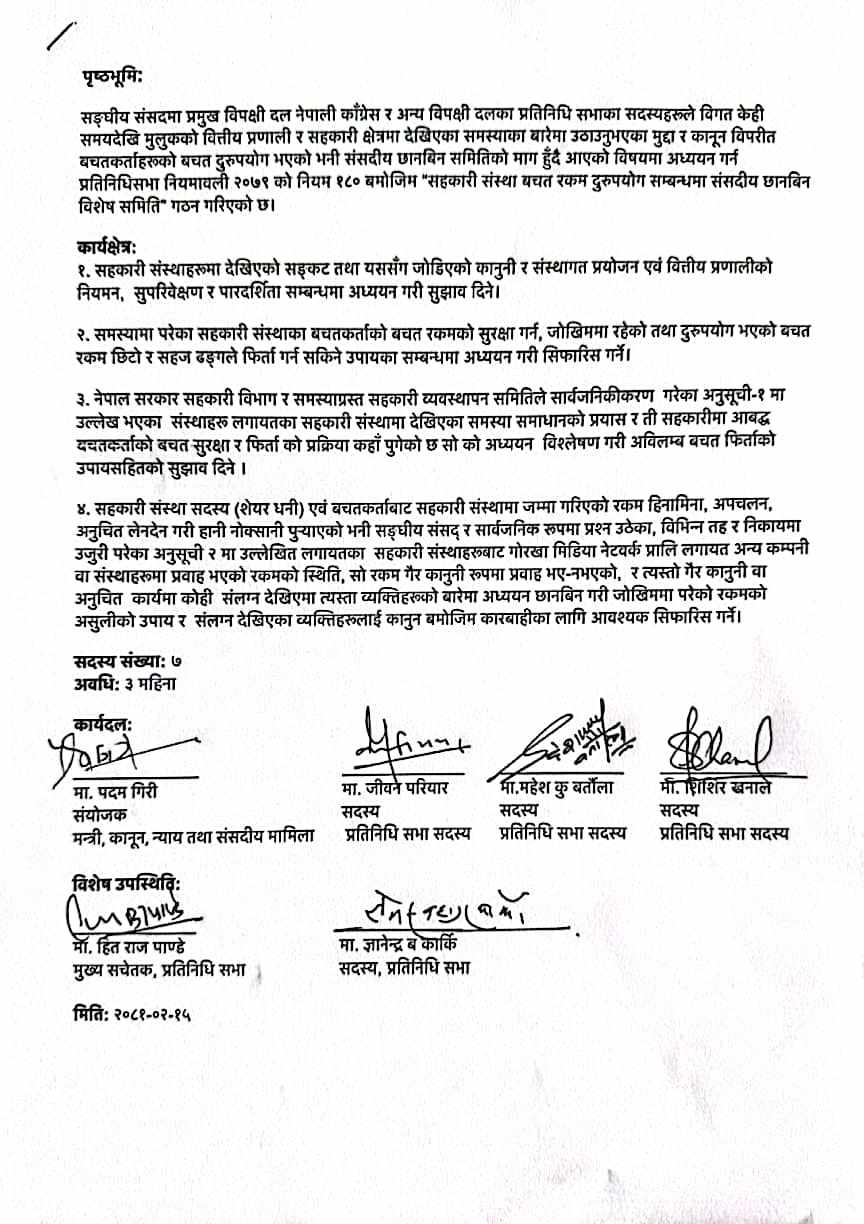 पृष्ठभूमि:
सङ्घीय संसदमा प्रमुख विपक्षी दल नेपाली काँग्रेस र अन्य विपक्षी दलका प्रतिनिधि सभाका सदस्यहरूले विगत केही
समयदेखि मुलुकको वित्तीय प्रणाली र सहकारी क्षेत्रमा देखिएका समस्याका बारेमा उठाउनुभएका मुद्दा र कानून विपरीत
बचतकर्ताहरूको बचत दुरुपयोग भएको भनी संसदीय छानबिन समितिको माग हुँदै आएको विषयमा अध्ययन गर्न
प्रतिनिधिसभा नियमावली २०७९ को नियम १८० बमोजिम "सहकारी संस्था बचत रकम दुरुपयोग सम्बन्धमा संसदीय छानबिन
विशेष समिति" गठन गरिएको छ।
कार्यक्षेत्र:
१. सहकारी संस्थाहरूमा देखिएको सङ्कट तथा यससँग जोडिएको कानुनी र संस्थागत प्रयोजन एवं वित्तीय प्रणालीको
नियमन, सुपरिवेक्षण र पारदर्शिता सम्बन्धमा अध्ययन गरी सुझाव दिने।
२. समस्यामा परेका सहकारी संस्थाका बचतकर्ताको बचत रकमको सुरक्षा गर्न, जोखिममा रहेको तथा दुरुपयोग भएको बचत
रकम छिटो र सहज ढङ्गले फिर्ता गर्न सकिने उपायका सम्बन्धमा अध्ययन गरी सिफारिस गर्ने।
३. नेपाल सरकार सहकारी विभाग र समस्याग्रस्त सहकारी व्यवस्थापन समितिले सार्वजनिकीकरण गरेका अनुसूची-१ मा
उल्लेख भएका संस्थाहरू लगायतका सहकारी संस्थामा देखिएका समस्या समाधानको प्रयास र ती सहकारीमा आबद्ध
बचतकर्ताको बचत सुरक्षा र फिर्ता को प्रक्रिया कहाँ पुगेको छ सो को अध्ययन विश्लेषण गरी अविलम्ब बचत फिर्ताको
उपायसहितको सुझाव दिने ।
४. सहकारी संस्था सदस्य (शेयर धनी) एवं बचतकर्ताबाट सहकारी संस्थामा जम्मा गरिएको रकम हिनामिना, अपचलन,
अनुचित लेनदेन गरी हानी नोक्सानी पुऱ्याएको भनी सङ्घीय संसद् र सार्वजनिक रूपमा प्रश्न उठेका, विभिन्न तह र निकायमा
उजुरी परेका अनुसूची २ मा उल्लेखित लगायतका सहकारी संस्थाहरूबाट गोरखा मिडिया नेटवर्क प्रालि लगायत अन्य कम्पनी
वा संस्थाहरूमा प्रवाह भएको रकमको स्थिति, सो रकम गैर कानुनी रूपमा प्रवाह भए-नभएको, र त्यस्तो गैर कानुनी वा
अनुचित कार्यमा कोही संलग्न देखिएमा त्यस्ता व्यक्तिहरूको बारेमा अध्ययन छानबिन गरी जोखिममा परेको रकमको
असुलीको उपाय र संलग्न देखिएका व्यक्तिहरूलाई कानुन बमोजिम कारबाहीका लागि आवश्यक सिफारिस गर्ने।
सदस्य संख्या: ७
अवधि: ३ महिना
कार्यदल:
मा. पदम गिरी मा. जीवन परियार मा.महेश कु बर्तौला मा. शिशिर खनाल
संयोजक सदस्य सदस्य सदस्य
मन्त्री, कानून, न्याय तथा संसदीय मामिला प्रतिनिधि सभा सदस्य प्रतिनिधि सभा सदस्य प्रतिनिधि सभा सदस्य
विशेष उपस्थिति:
मा. हित राज पाण्डे मा. ज्ञानेन्द्र ब कार्कि
मुख्य सचेतक, प्रतिनिधि सभा सदस्य, प्रतिनिधि सभा
मिति: २०८१-०२-१५